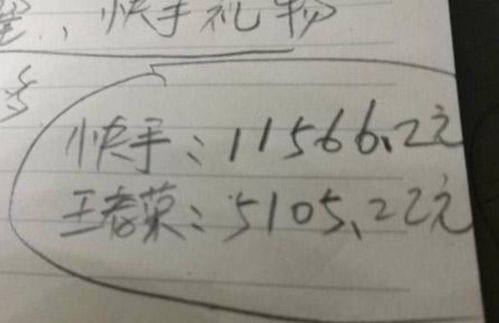 , 快手礼物
快手：11566.2元
王春菜：5105.22元